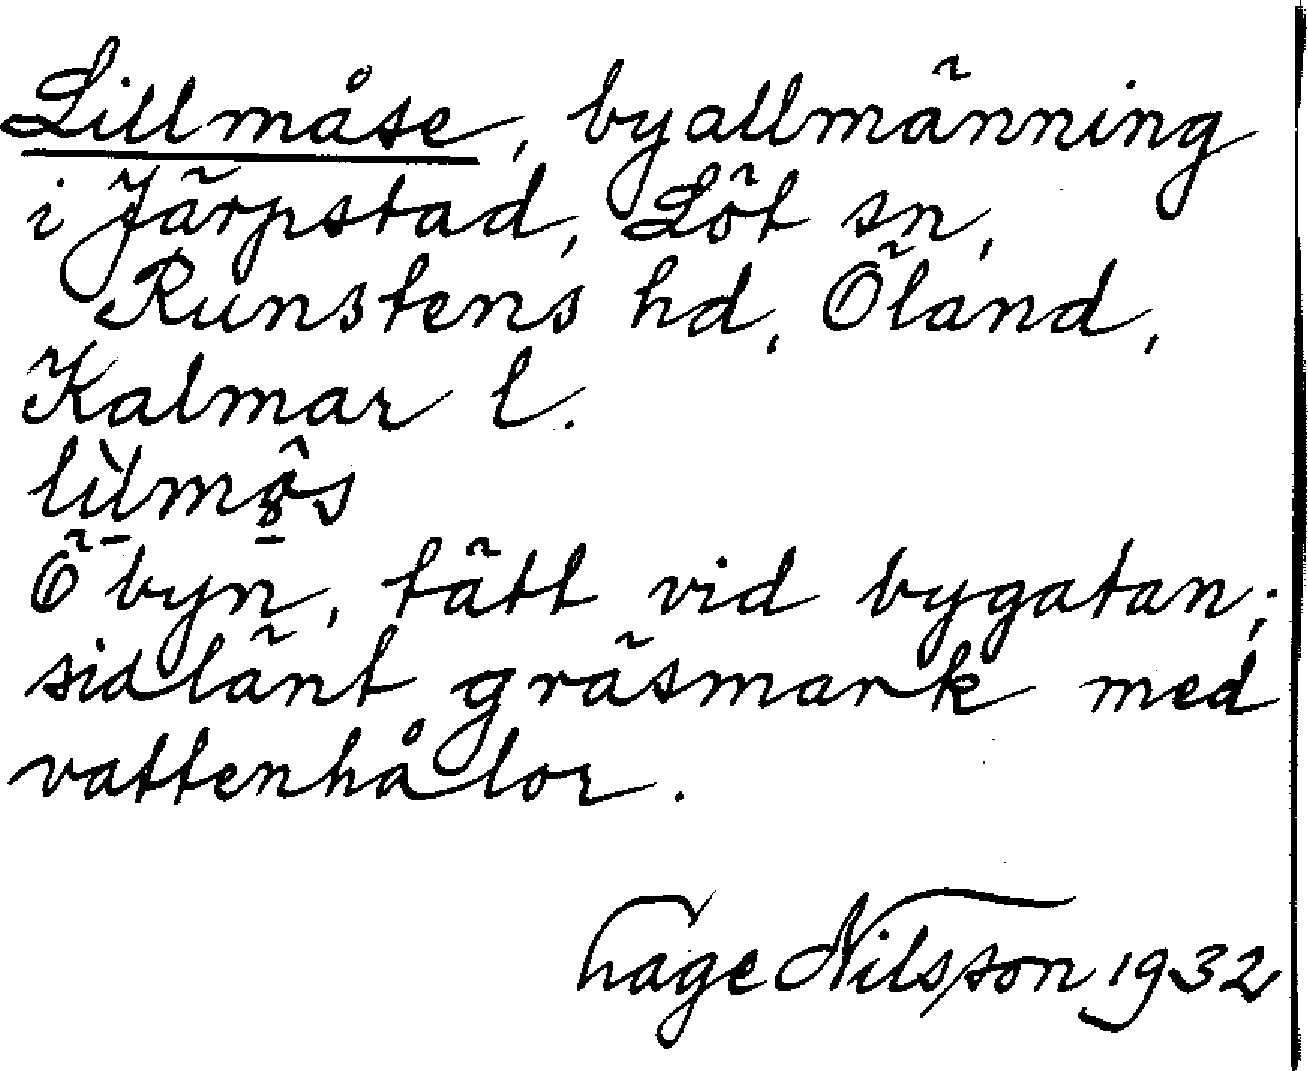 Lillmåse, byallmänning
i Järpstad, Löt sn,
Runstens hd, Öland,
Kalmar l.
Ö byn, tätt vid bygatan;
sidlänt gräsmark med
vattenhålor.
Hage Nilsson 1932